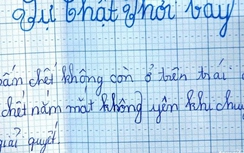 Sự thật phơi bày
bấm chết không còn ở trên trái
chết nằm mắt không yên khi chu
giải quyết.